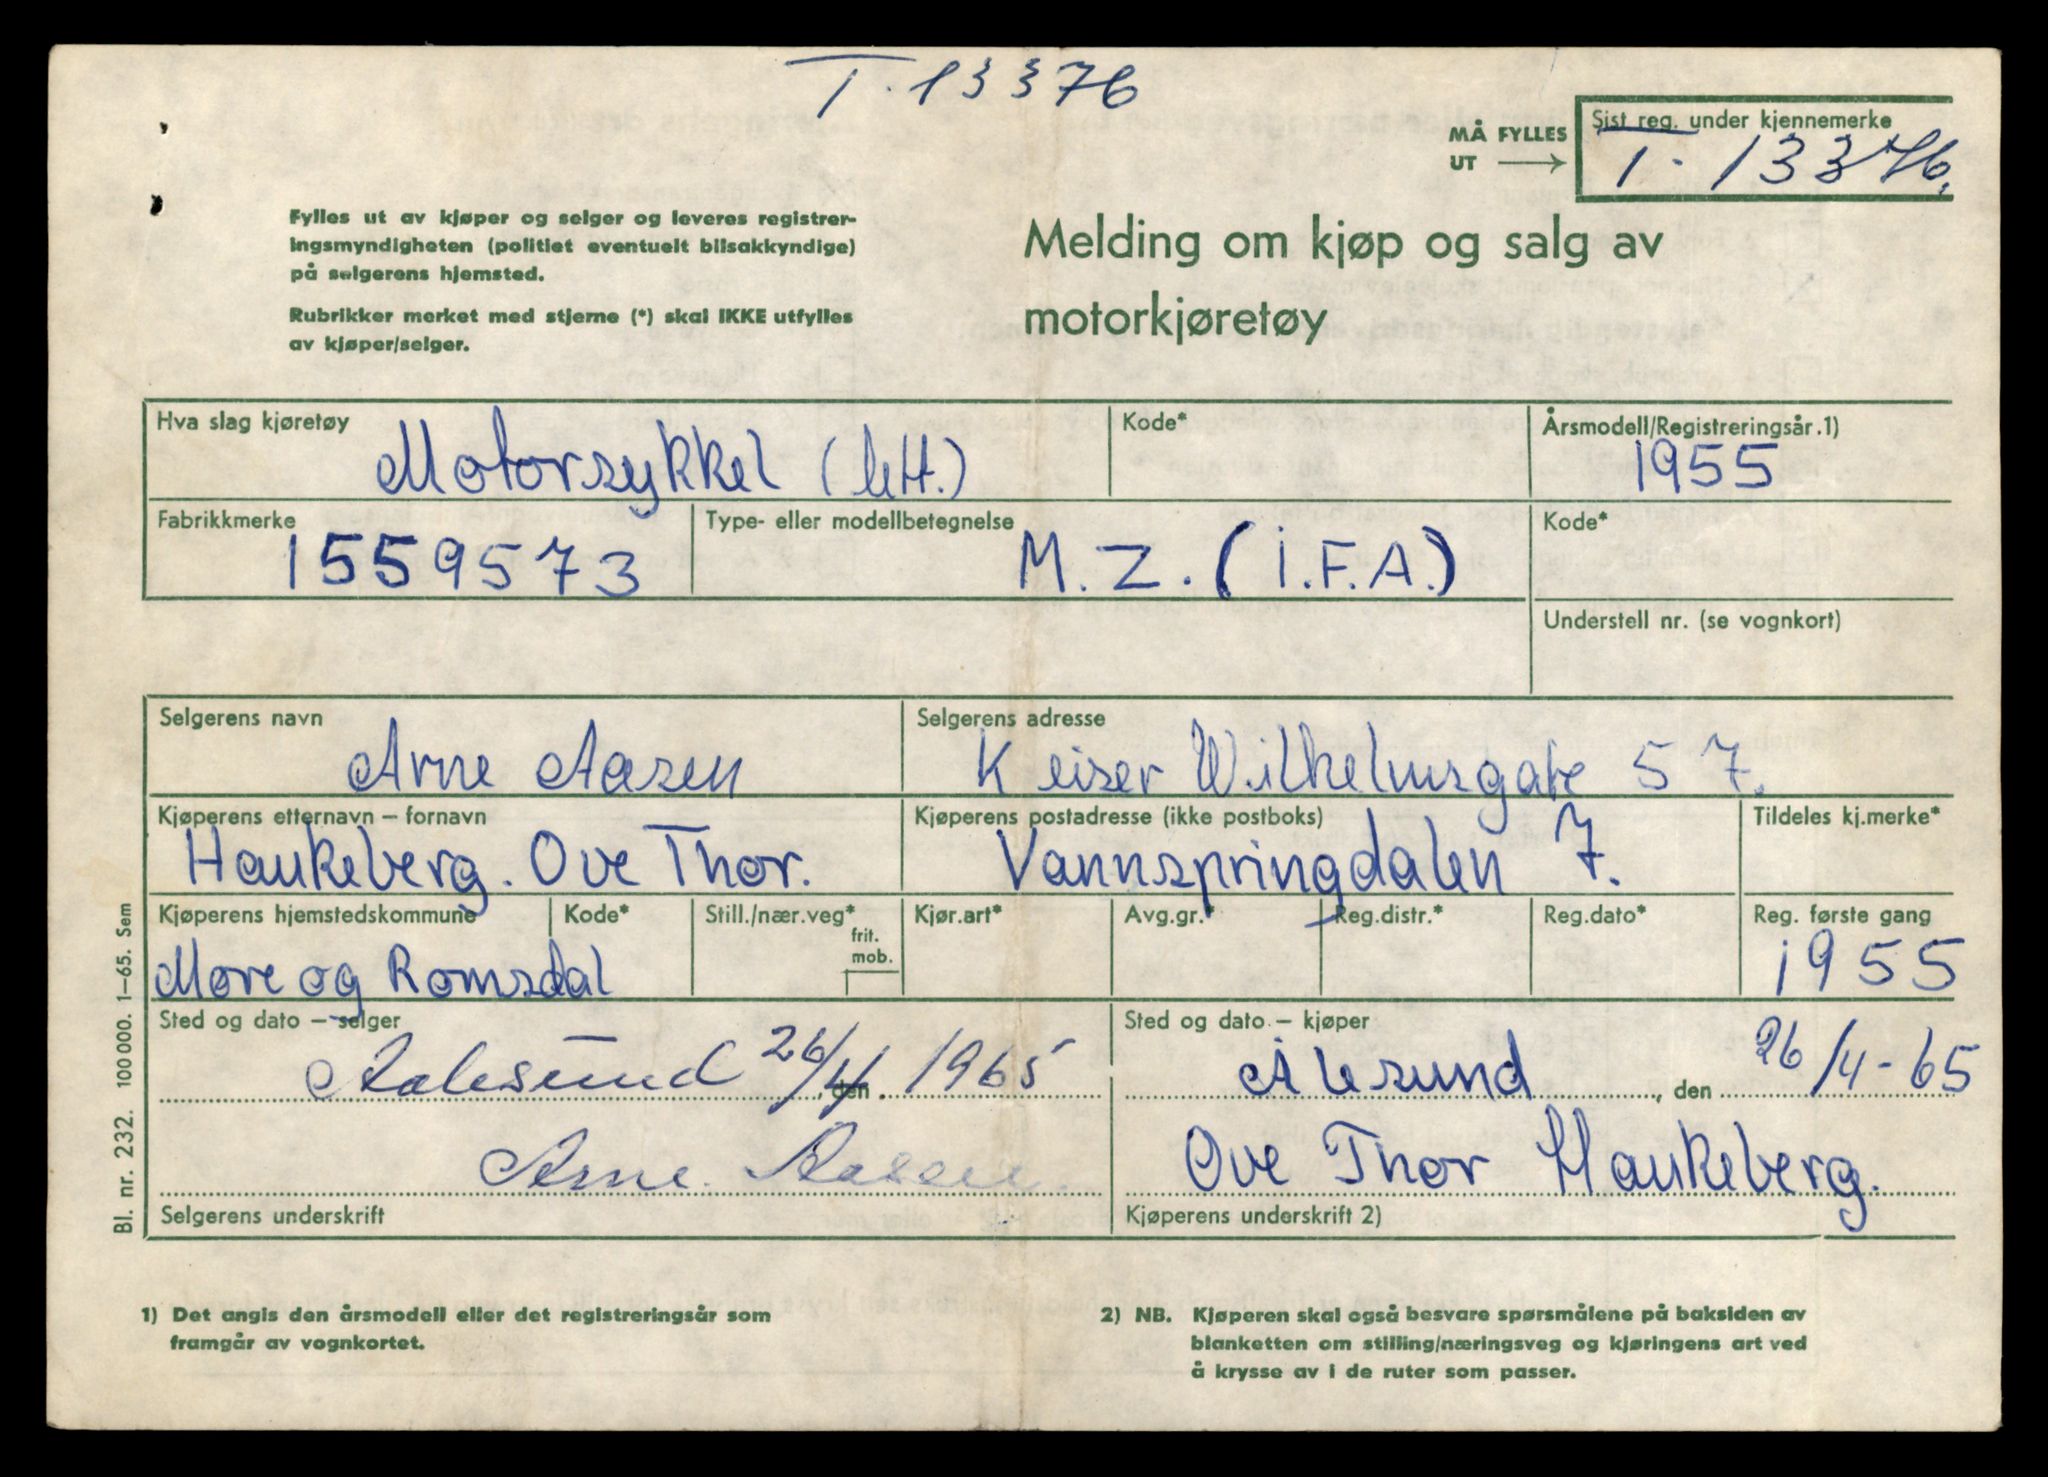 T. 13376
MÅ FYLLES
UT
Sist reg. under kjennemerke
T. 13376.
Fylles ut av kjøper og selger og leveres registrer-
ingsmyndigheten (politiet eventuelt bilsakkyndige)
på selgerens hjemsted.
Rubrikker merket med stjerne (*) skal IKKE utfylles
av kjøper/selger.
Melding om kjøp og salg av
motorkjøretøy
Hva slag kjøretøy
Motorsykkel (lett.)
Kode*
Årsmodell/Registreringsår.1)
1955
Fabrikkmerke
1559573
Type- eller modellbetegnelse
M.Z. (I.F.A.)
Kode*
Understell nr. (se vognkort)
Selgerens navn
Arne Aasen
Selgerens adresse
Keiser Wilhelmsgate 57.
Kjøperens etternavn – fornavn
Haukeberg. Ove Thor.
Kjøperens postadresse (ikke postboks)
Vannspringdalen 7.
Tildeles kj.merke*
Kjøperens hjemstedskommune
Møre og Romsdal
Kode*
Still./nær.veg*
frit.
mob.
Kjør.art*
Avg.gr.*
Reg.distr.*
Reg.dato*
Reg. første gang
1955
Sted og dato – selger
Aalesund 26/4, den 1965
Sted og dato – kjøper
Ålesund, den 26/4-65
Arne Aasen.
Selgerens underskrift
Ove Thor Haukeberg.
Kjøperens underskrift 2)
Bl. nr. 232. 100 000. 1–65. Sem
1) Det angis den årsmodell eller det registreringsår som
framgår av vognkortet.
2) NB. Kjøperen skal også besvare spørsmålene på baksiden av
blanketten om stilling/næringsveg og kjøringens art ved
å krysse av i de ruter som passer.